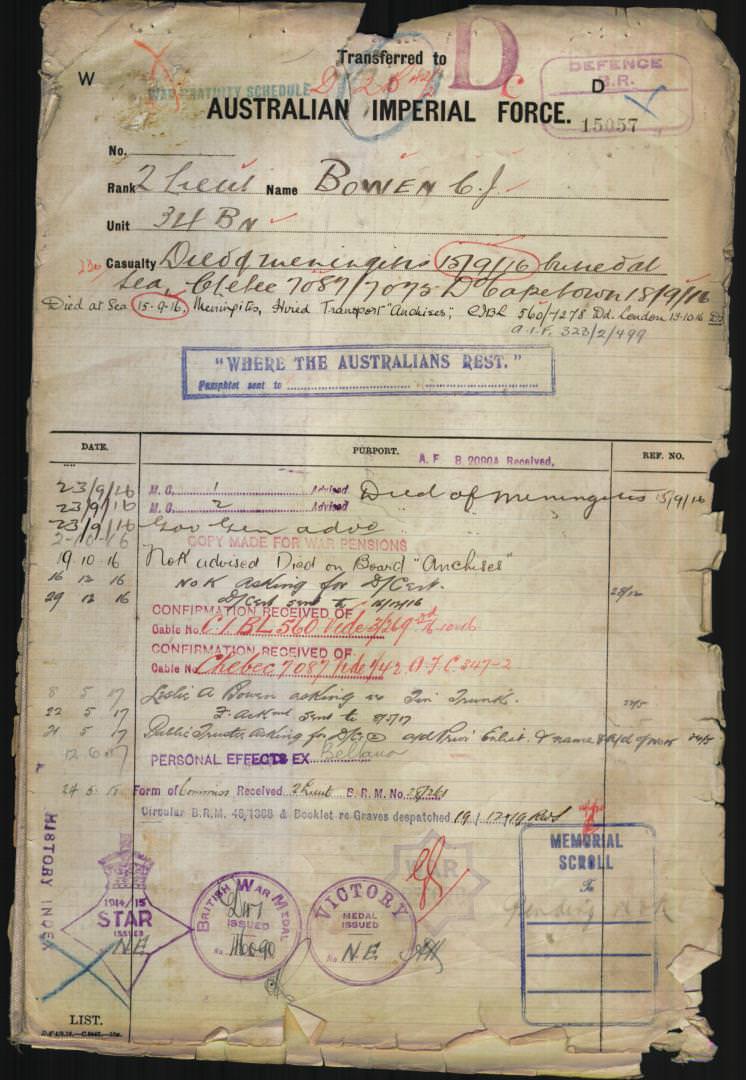 Transferred to D
DEFENCE
B.R.
15057
W
D
WAR GRATUITY SCHEDULE
AUSTRALIAN IMPERIAL FORCE.
No.
Rank 2 Lieut Name BOWEN C. J.
Unit 34 BN
Casualty Died of meningitis 15/9/16 buried at
sea. 7087/7075 D Capetown 18/9/16
Died at Sea 15-9-16. Meningitis, Hired Transport "Anchises"; CIBL 560/7278 Dd. London 13-10-16
A.I.F. 323/2/499
"WHERE THE AUSTRALIANS REST."
Pamphlet sent to
DATE. PURPORT. REF. NO.
A. F B. 2090A Received.
23/9/16 M.C. 1 Advised Died of meningitis 15/9/16
23/9/16 M.C. 2 Advised
23/9/16 Gov Gen advd
2-10-16 COPY MADE FOR WAR PENSIONS
19.10.16 NoK advised Died on Board "Anchises"
16 12 16 NoK asking for D/Cert.
29 12 16 D/Cert sent to
CONFIRMATION RECEIVED OF
Cable No. C.I.BL 560 Vide
CONFIRMATION RECEIVED OF
Cable No. Chebec 7087 Vide
8 5 17 Leslie A Bowen asking re Tin Trunk.
22 5 17 sent to
21 5 17 Public Trustee asking for
12.6.17 PERSONAL EFFECTS EX Beltana
24 5 18 Form of Commiss Received 2 Lieut B.R.M. No. 28/261
Circular B.R.M. 48/1388 & Booklet re Graves despatched 19/12/19
HISTORY INDEX
1914/15
STAR
ISSUED
N.E.
BRITISH WAR MEDAL
ISSUED
No.
VICTORY
MEDAL
ISSUED
No. N.E.
WAR
MEMORIAL
SCROLL
To
Pending NoK
LIST.